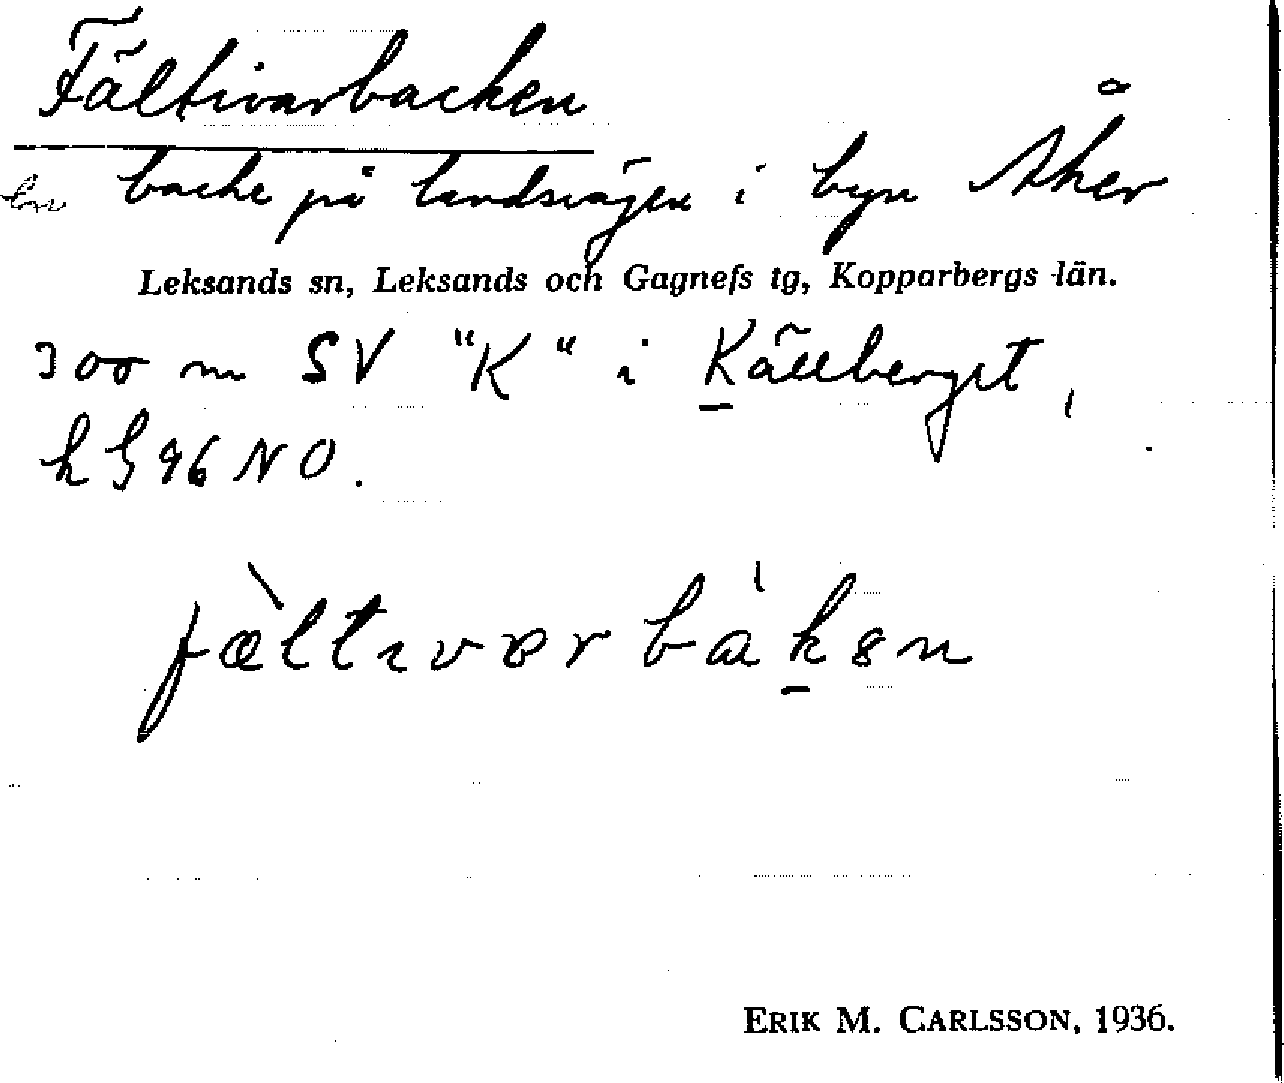 Fältivarbacken
En backe på landsvägen i byn Åker
Leksands sn, Leksands och Gagnefs tg, Kopparbergs län.
300 m SV "K" i Källberget,
h G 96 NO.
fæ̀ltıvɐrbàkən
ERIK M. CARLSSON, 1936.